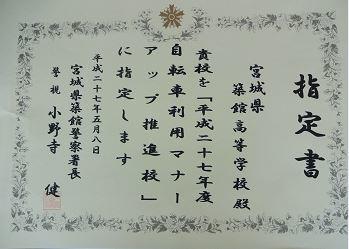 指定書
宮城県
築館高等学校殿
貴校を「平成二十七年度
自転車利用マナー
アップ推進校」
に指定します
平成二十七年五月八日
宮城県築館警察署長
警視 小野寺 健